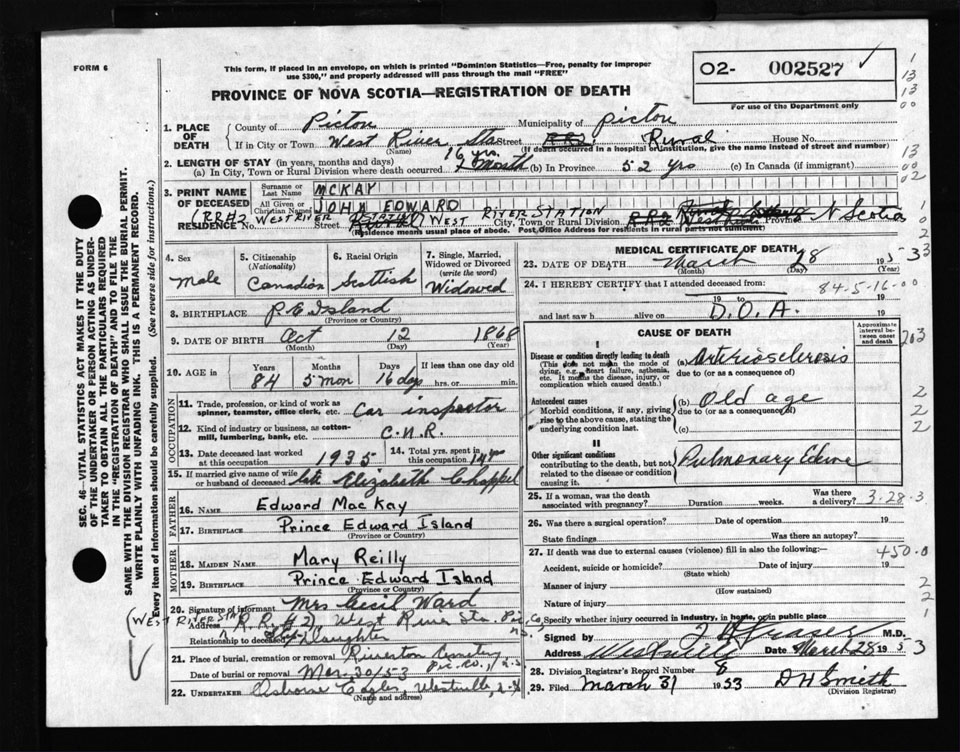 FORM 6
This form, if placed in an envelope, on which is printed "Dominion Statistics—Free, penalty for improper
use $300," and properly addressed will pass through the mail "FREE"
PROVINCE OF NOVA SCOTIA—REGISTRATION OF DEATH
02- 002527 ✓
For use of the Department only
1
13
13
00
13
00
02
1
0
2
1. PLACE OF DEATH
County of Pictou Municipality of Pictou
If in City or Town West River Sta. Street RR2 Rural House No.
(Name) (If death occurred in a hospital or institution, give the name instead of street and number)
2. LENGTH OF STAY (in years, months and days)
(a) In City, Town or Rural Division where death occurred 16 yrs. 2 month (b) In Province 52 yrs (c) In Canada (if immigrant)
3. PRINT NAME OF DECEASED
Surname or Last Name MCKAY
All Given or Christian Names JOHN EDWARD
RESIDENCE No. (RR#2 WEST RIVER STATION) WEST RIVER STATION City, Town or Rural Division Province N Scotia
(Residence means usual place of abode. Post Office Address for residents in rural parts not sufficient)
4. Sex
Male
5. Citizenship
(Nationality)
Canadian
6. Racial Origin
Scottish
7. Single, Married,
Widowed or Divorced
(write the word)
Widowed
8. BIRTHPLACE P.E. Island
(Province or Country)
9. DATE OF BIRTH Oct 12 1868
(Month) (Day) (Year)
10. AGE in Years Months Days If less than one day old
84 5 mon 16 days hrs. or min.
OCCUPATION
11. Trade, profession, or kind of work as
spinner, teamster, office clerk, etc. Car inspector
12. Kind of industry or business, as cotton-
mill, lumbering, bank, etc. C.N.R.
13. Date deceased last worked
at this occupation 1935
14. Total yrs. spent
in this occupation 14 yr
15. If married give name of wife
or husband of deceased late Elizabeth Chappel
FATHER
16. NAME Edward MacKay
17. BIRTHPLACE Prince Edward Island
(Province or Country)
MOTHER
18. MAIDEN NAME Mary Reilly
19. BIRTHPLACE Prince Edward Island
(Province or Country)
20. Signature of informant Mrs Cecil Ward
(WEST RIVER STA) Address R.R.#2, West River Sta. Pic. Co. N.S.
Relationship to deceased Daughter
21. Place of burial, cremation or removal Riverton Cemetery
Date of burial or removal Mar. 30/53 Pic. Co., N.S.
22. UNDERTAKER Osborne Eagles, Westville, N.S.
(Name and address)
MEDICAL CERTIFICATE OF DEATH
23. DATE OF DEATH March 28 1953
(Month) (Day) (Year)
3
24. I HEREBY CERTIFY that I attended deceased from:
84-5-16-00
19 to 19
and last saw h alive on D.O.A. 19
CAUSE OF DEATH
Approximate
interval between
onset
and death
203
Disease or condition directly leading to death
(This does not mean the mode of
dying, e.g., heart failure, asthenia,
etc. It means the disease, injury, or
complication which caused death.)
(a) Arteriosclerosis
due to (or as a consequence of)
Antecedent causes
Morbid conditions, if any, giving
rise to the above cause, stating the
underlying condition last.
(b) Old age
due to (or as a consequence of)
(c)
2
2
2
II
Other significant conditions
contributing to the death, but not
related to the disease or condition
causing it.
Pulmonary Edema
25. If a woman, was the death
associated with pregnancy? Duration weeks. Was there
a delivery? 3-28-3
26. Was there a surgical operation? Date of operation 19
State findings Was there an autopsy?
27. If death was due to external causes (violence) fill in also the following:
450-0
Accident, suicide or homicide? Date of injury 19
(State which)
Manner of injury
(How sustained)
Nature of injury
2
2
1
Specify whether injury occurred in industry, in home, or in public place
Signed by Fraser M.D.
Address Westville Date March 28 1953
28. Division Registrar's Record Number 8
29. Filed March 31 1953 D H Smith
(Division Registrar)
SEC. 46—VITAL STATISTICS ACT MAKES IT THE DUTY
OF THE UNDERTAKER OR PERSON ACTING AS UNDER-
TAKER TO OBTAIN ALL THE PARTICULARS REQUIRED
IN THE "REGISTRATION OF DEATH" AND TO FILE THE
SAME WITH THE DIVISION REGISTRAR WHO SHALL ISSUE THE BURIAL PERMIT.
WRITE PLAINLY WITH UNFADING INK. THIS IS A PERMANENT RECORD.
Every item of information should be carefully supplied. (See reverse side for instructions.)